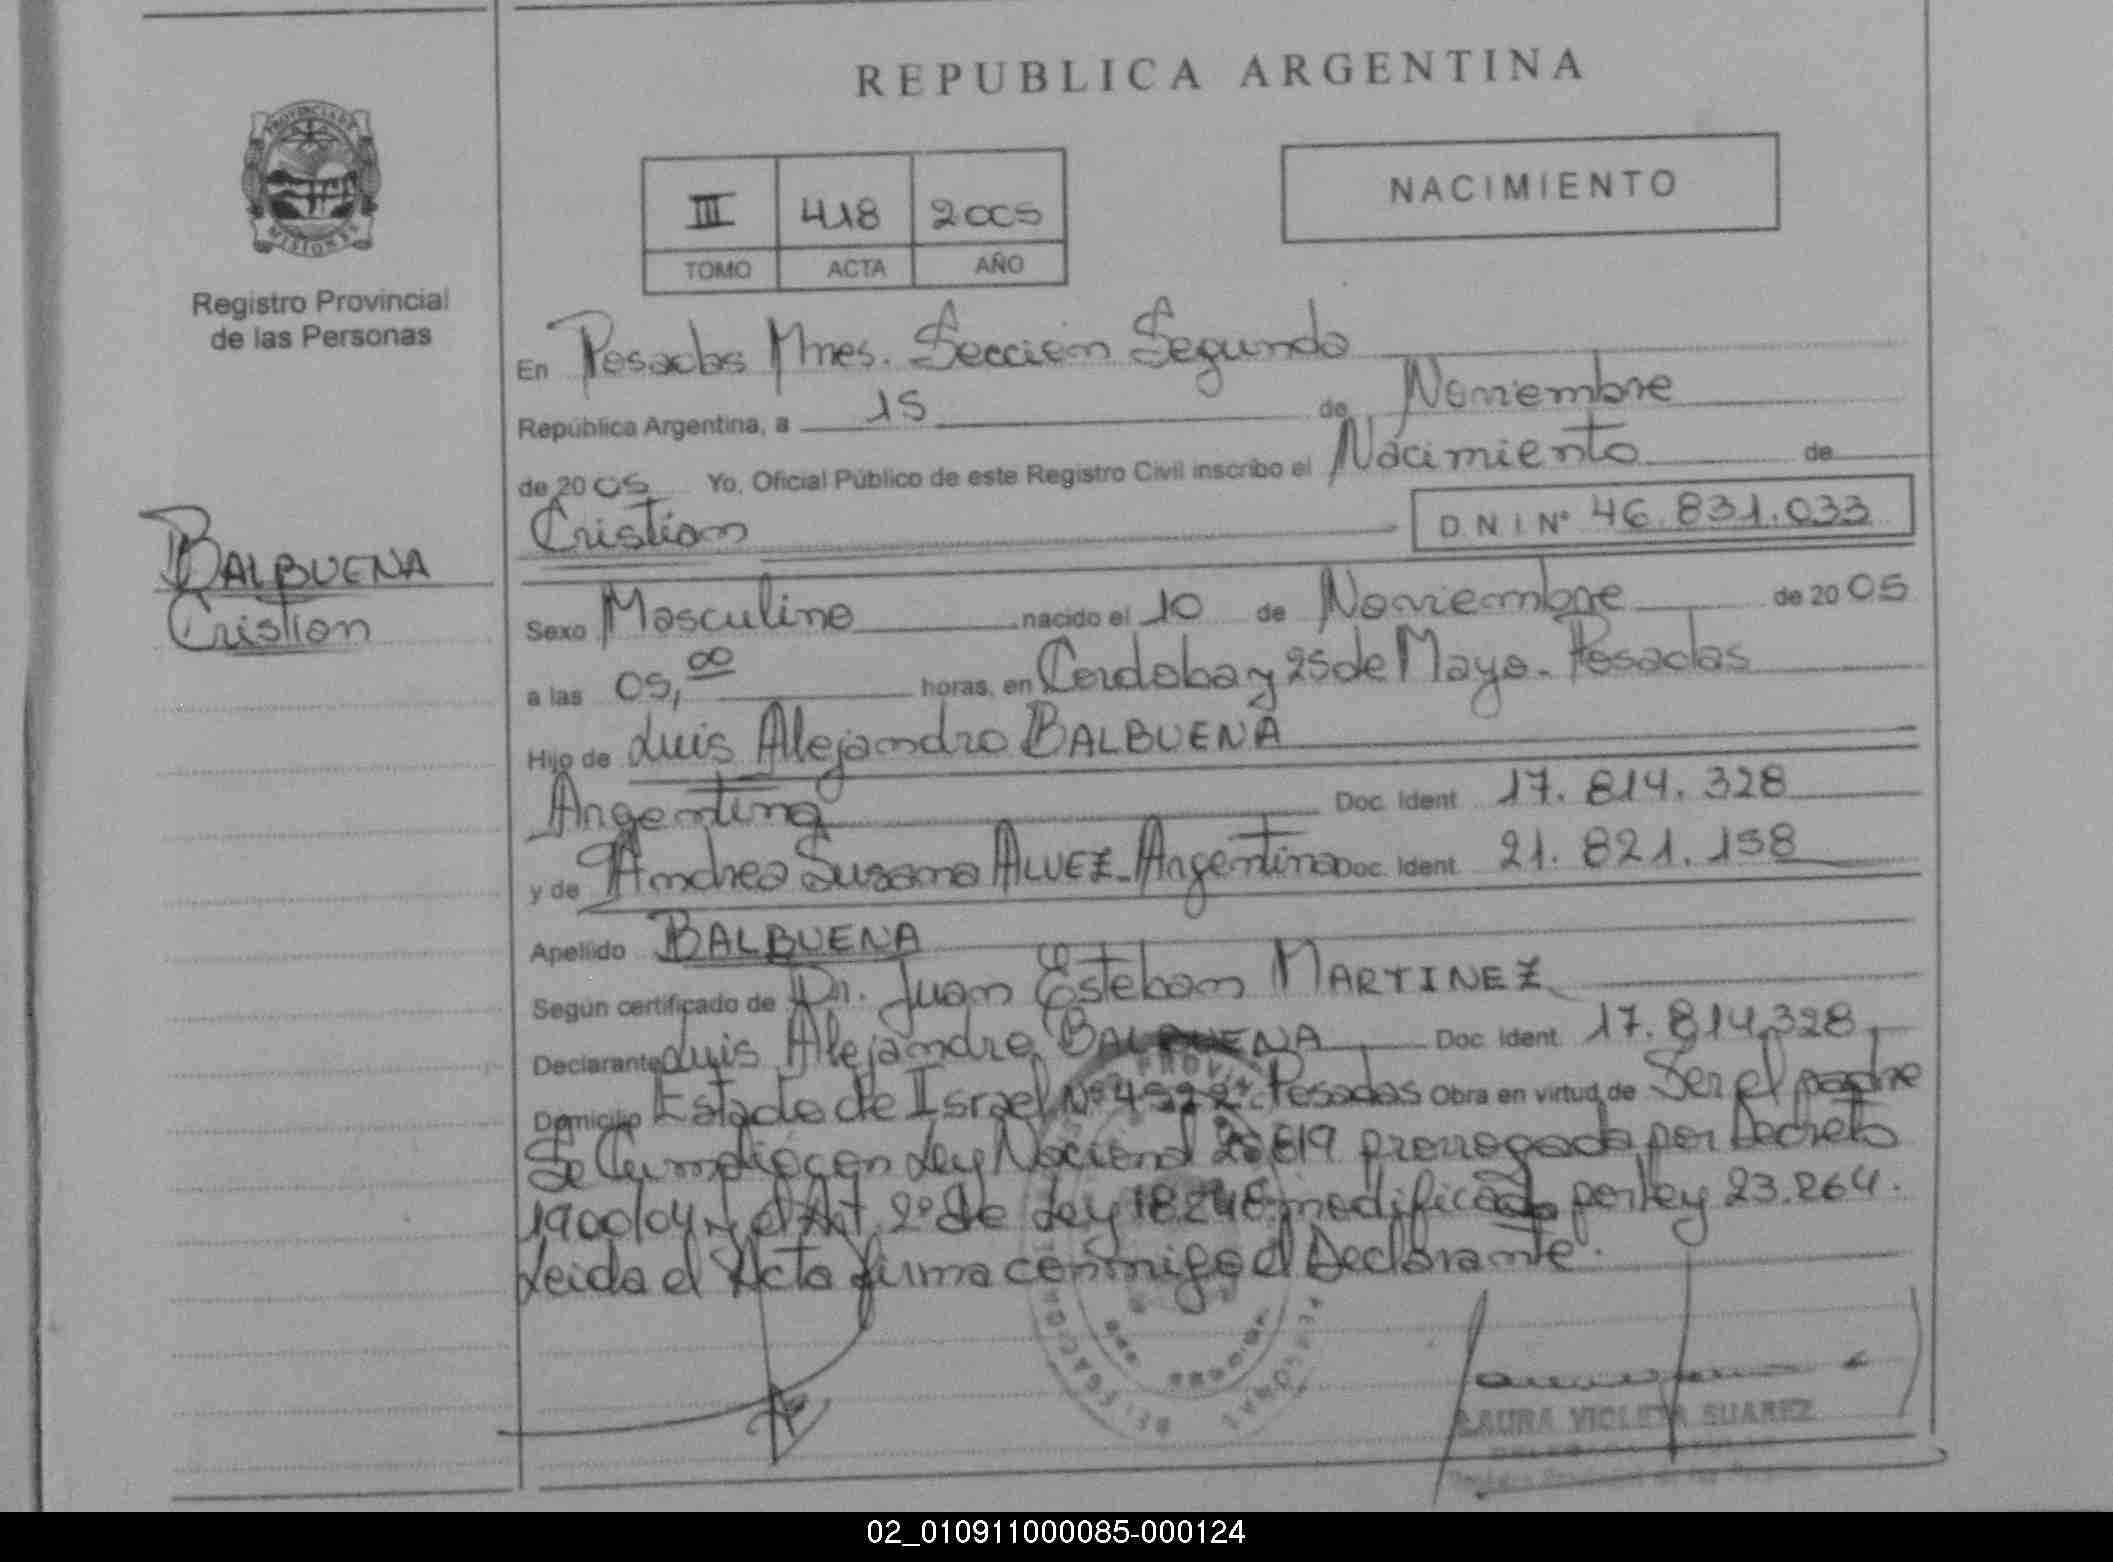 REPUBLICA ARGENTINA
PROVINCIA DE
MISIONES
Registro Provincial
de las Personas
III 418 2005
TOMO ACTA AÑO
NACIMIENTO
En Posadas Mnes. Sección Segunda
República Argentina, a 15 de Noviembre
de 2005 Yo, Oficial Público de este Registro Civil inscribo el Nacimiento de
Cristian D N I Nº 46.831.033
BALBUENA
Cristian
Sexo Masculino nacido el 10 de Noviembre de 2005
a las 05,00 horas, en Cordoba y 25 de Mayo - Posadas
Hijo de Luis Alejandro BALBUENA
Argentina Doc. Ident 17.814.328
y de Andrea Susana ALVEZ - Argentina Doc. Ident 21.821.158
Apellido BALBUENA
Según certificado de Dr. Juan Esteban MARTINEZ
Declarante Luis Alejandro BALBUENA Doc. Ident. 17.814.328
Domicilio Estado de Israel Nº Posadas Obra en virtud de Ser el padre
Se Cumplió con Ley Nacional prorrogada por Decreto
1900/04 y el Art. 2º de Ley 18248 modificado por Ley 23.264.
Leida el Acta firma conmigo el Declarante.
LAURA VIOLETA SUAREZ
02_010911000085-000124